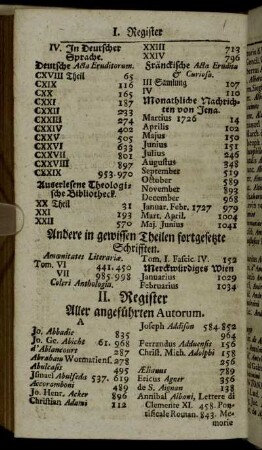 I. Register
IV. In Deutscher
Sprache.
Deutsche Acta Eruditorum.
CXVIII Theil 65
CXIX 116
CXX 165
CXXI 187
CXXII 233
CXXIII 274
CXXIV 402
CXXV 505
CXXVI 633
CXXVII 801
CXXVIII 897
CXXIX 953-970
Auserlesene Theologi-
sche Bibliotheck.
XX Theil 31
XXI 193
XXII 570
XXIII 713
XXIV 796
Fränckische Acta Erudita
& Curiosa.
III Samlung 107
IV 110
Monathliche Nachrich-
ten von Jena.
Martius 1726 14
Aprilis 102
Majus 150
Junius 151
Julius 246
Augustus 348
September 519
October 589
November 893
December 968
Januar. Febr. 1727 979
Mart. April. 1004
Maj. Junius 1041
Andere in gewissen Theilen fortgesetzte
Schrifften.
Amœnitates Literariæ.
Tom. VI 441.450
VII 985.998
Coleri Anthologia.
Tom. I, Fascic. IV. 152
Merckwürdiges Wien
Januarius 1029
Februarius 1034
II. Register
Aller angeführten Autorum.
A
Jo. Abbadie 835
Jo. Ge. Abicht 61. 968
d'Ablancourt 287
Abraham Wormatiens. 278
Abulcasis 495
Ismael Abulfeda 537. 619
Accoramboni 489
Jo. Henr. Acker 896
Christian Adami 112
Joseph Addison 584. 852
964
Ferrandus Adduensis 156
Christ. Mich. Adolphi 158
256
Ælianus 789
Ericus Agner 356
de S. Aignan 138
Annibal Albani, Lettere di
Clemente XI. 458. Pon-
tificale Roman. 843. Me-
morie